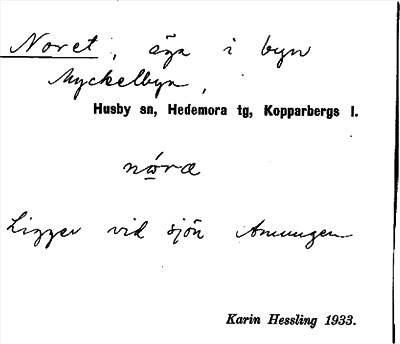 Noret, äga i byn
Myckelbyn,
Husby sn, Hedemora tg, Kopparbergs l.
nóra
Ligger vid sjön Amungen
Karin Hessling 1933.